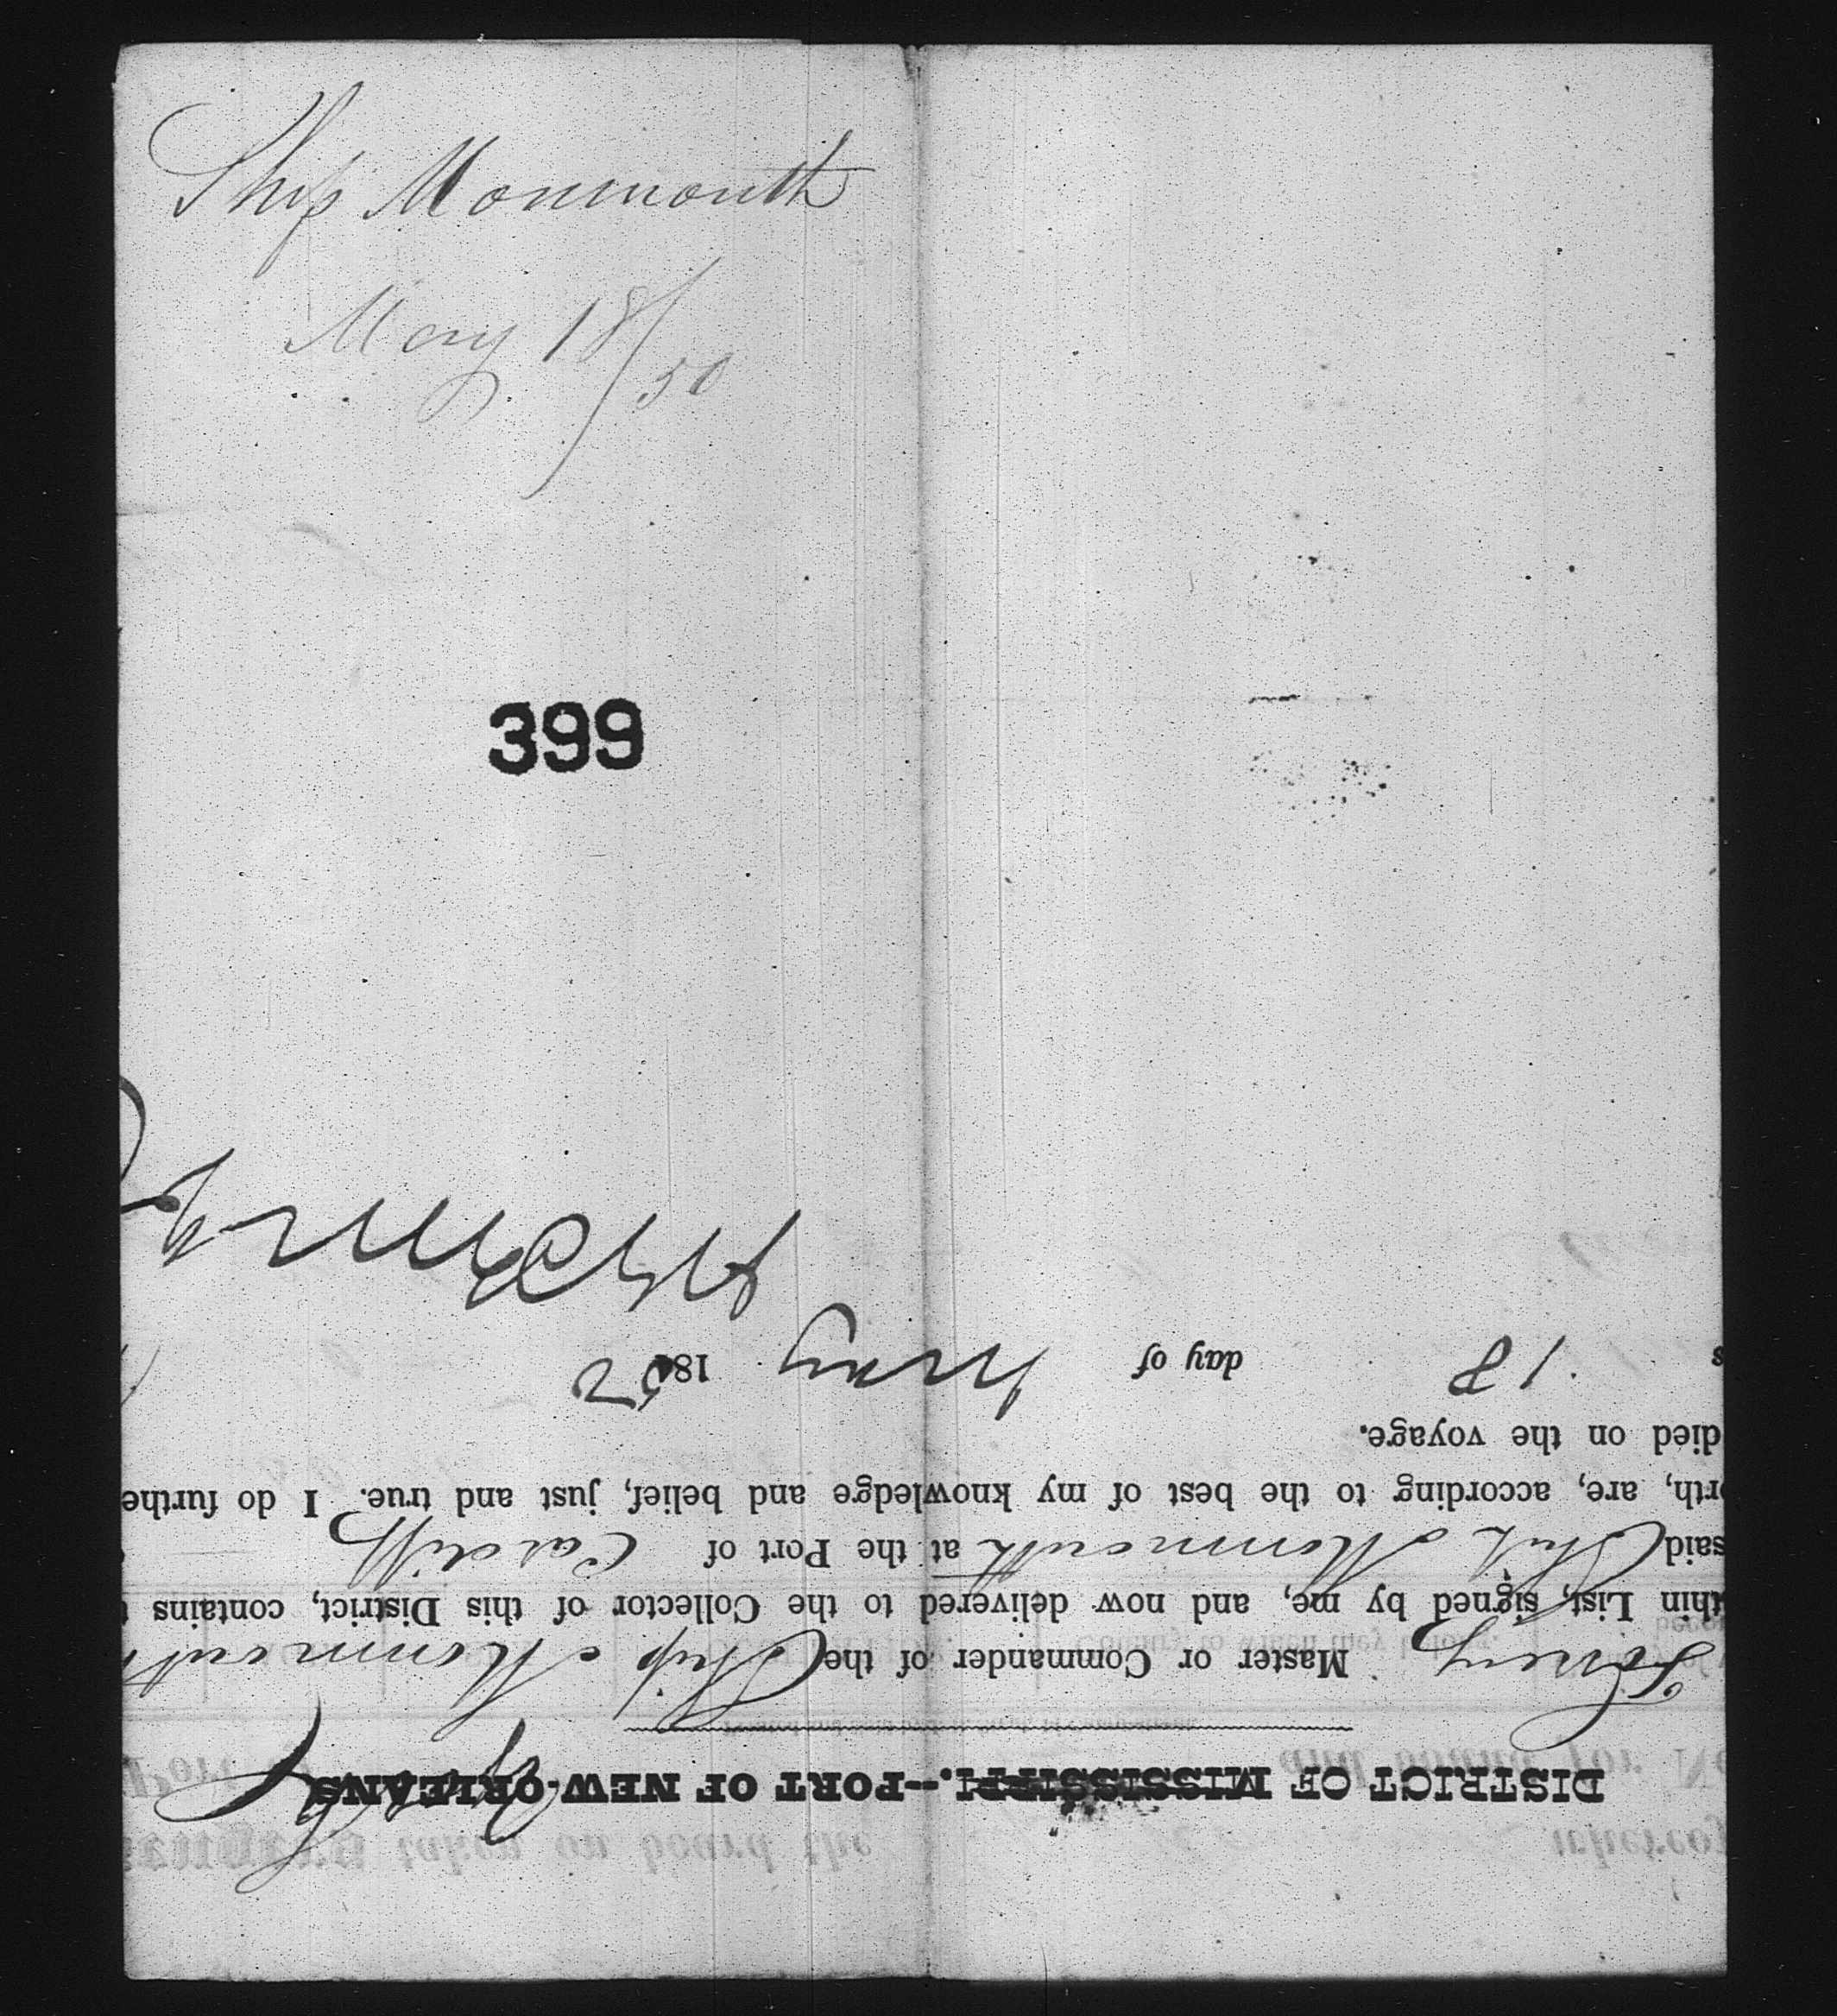 Ship Monmouth
May 18/50
399
DISTRICT OF MISSISSIPPI.--PORT OF NEW-ORLEANS
Master or Commander of the Ship Monmouth
thin List, signed by me, and now delivered to the Collector of this District, contains
said Ship Monmouth at the Port of Cardiff
rth, are, according to the best of my knowledge and belief, just and true. I do furthe
died on the voyage.
s 18 day of May 1850